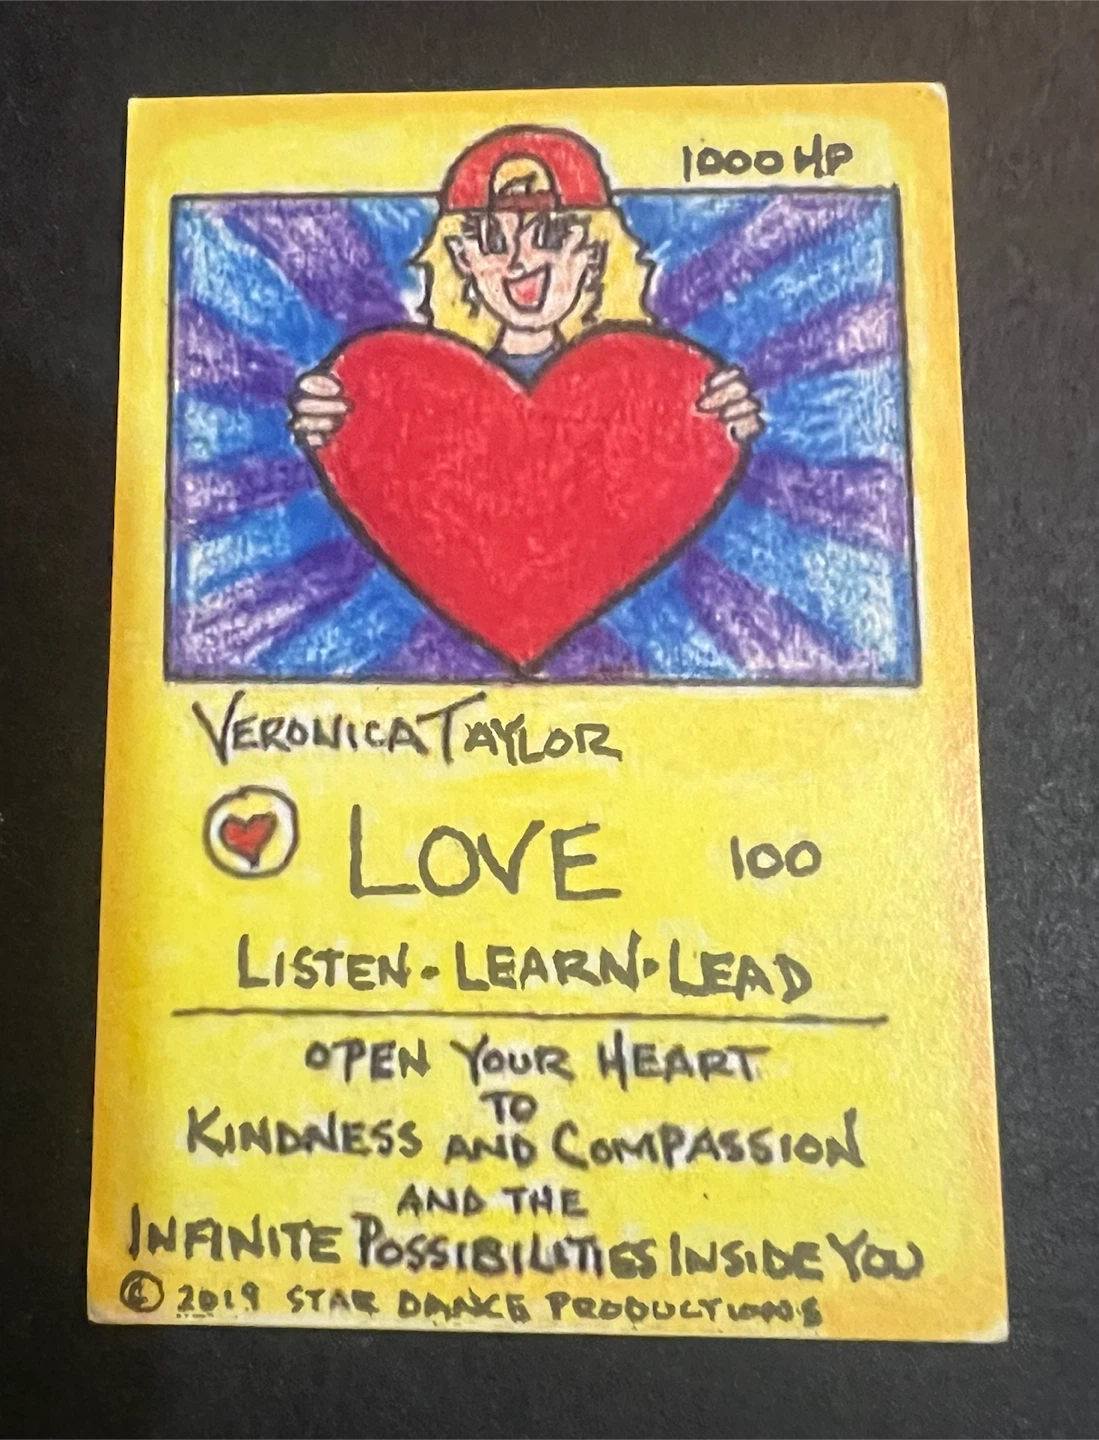 1000 HP
VERONICA TAYLOR
LOVE 100
LISTEN • LEARN • LEAD
OPEN YOUR HEART
TO
KINDNESS AND COMPASSION
AND THE
INFINITE POSSIBILITIES INSIDE YOU
© 2019 STAR DANCE PRODUCTIONS